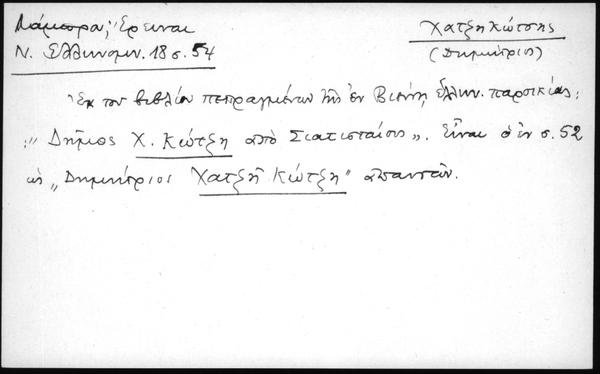 Λάμπρου, Ἔρευναι
Ν. Ἑλληνομν. 18 σ. 54
Χατζηκώτσης
(Δημήτριος)
Ἐκ τοῦ βιβλίου πεπραγμένων τῆς ἐν Βιέννῃ Ἑλλην. παροικίας:
"Δῆμος Χ. Κώτζη ἀπὸ Σιατισταίσις". Εἶναι ὁ ἐν σ. 52
ὡς "Δημήτριος Χατζῆ Κώτζη" ἀπαντῶν.